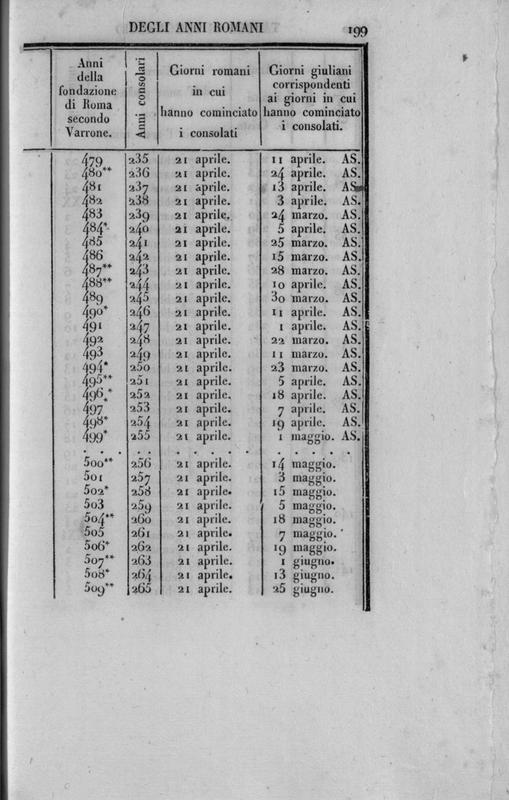 DEGLI ANNI ROMANI 199
Anni della fondazione di Roma secondo Varrone. | Anni consolari | Giorni romani in cui hanno cominciato i consolati | Giorni giuliani corrispondenti ai giorni in cui hanno cominciato i consolati.
479 235 21 aprile. 11 aprile. AS.
480** 236 21 aprile. 24 aprile. AS.
481 237 21 aprile. 13 aprile. AS.
482 238 21 aprile. 3 aprile. AS.
483 239 21 aprile. 24 marzo. AS.
484* 240 21 aprile. 5 aprile. AS.
485 241 21 aprile. 25 marzo. AS.
486 242 21 aprile. 15 marzo. AS.
487** 243 21 aprile. 28 marzo. AS.
488** 244 21 aprile. 10 aprile. AS.
489 245 21 aprile. 30 marzo. AS.
490* 246 21 aprile. 11 aprile. AS.
491 247 21 aprile. 1 aprile. AS.
492 248 21 aprile. 22 marzo. AS.
493 249 21 aprile. 11 marzo. AS.
494* 250 21 aprile. 23 marzo. AS.
495** 251 21 aprile. 5 aprile. AS.
496* 252 21 aprile. 18 aprile. AS.
497 253 21 aprile. 7 aprile. AS.
498* 254 21 aprile. 19 aprile. AS.
499* 255 21 aprile. 1 maggio. AS.
. . . . . . . . . . . . . .
500** 256 21 aprile. 14 maggio.
501 257 21 aprile. 3 maggio.
502* 258 21 aprile. 15 maggio.
503 259 21 aprile. 5 maggio.
504** 260 21 aprile. 18 maggio.
505 261 21 aprile. 7 maggio.
506* 262 21 aprile. 19 maggio.
507** 263 21 aprile. 1 giugno.
508* 264 21 aprile. 13 giugno.
509** 265 21 aprile. 25 giugno.